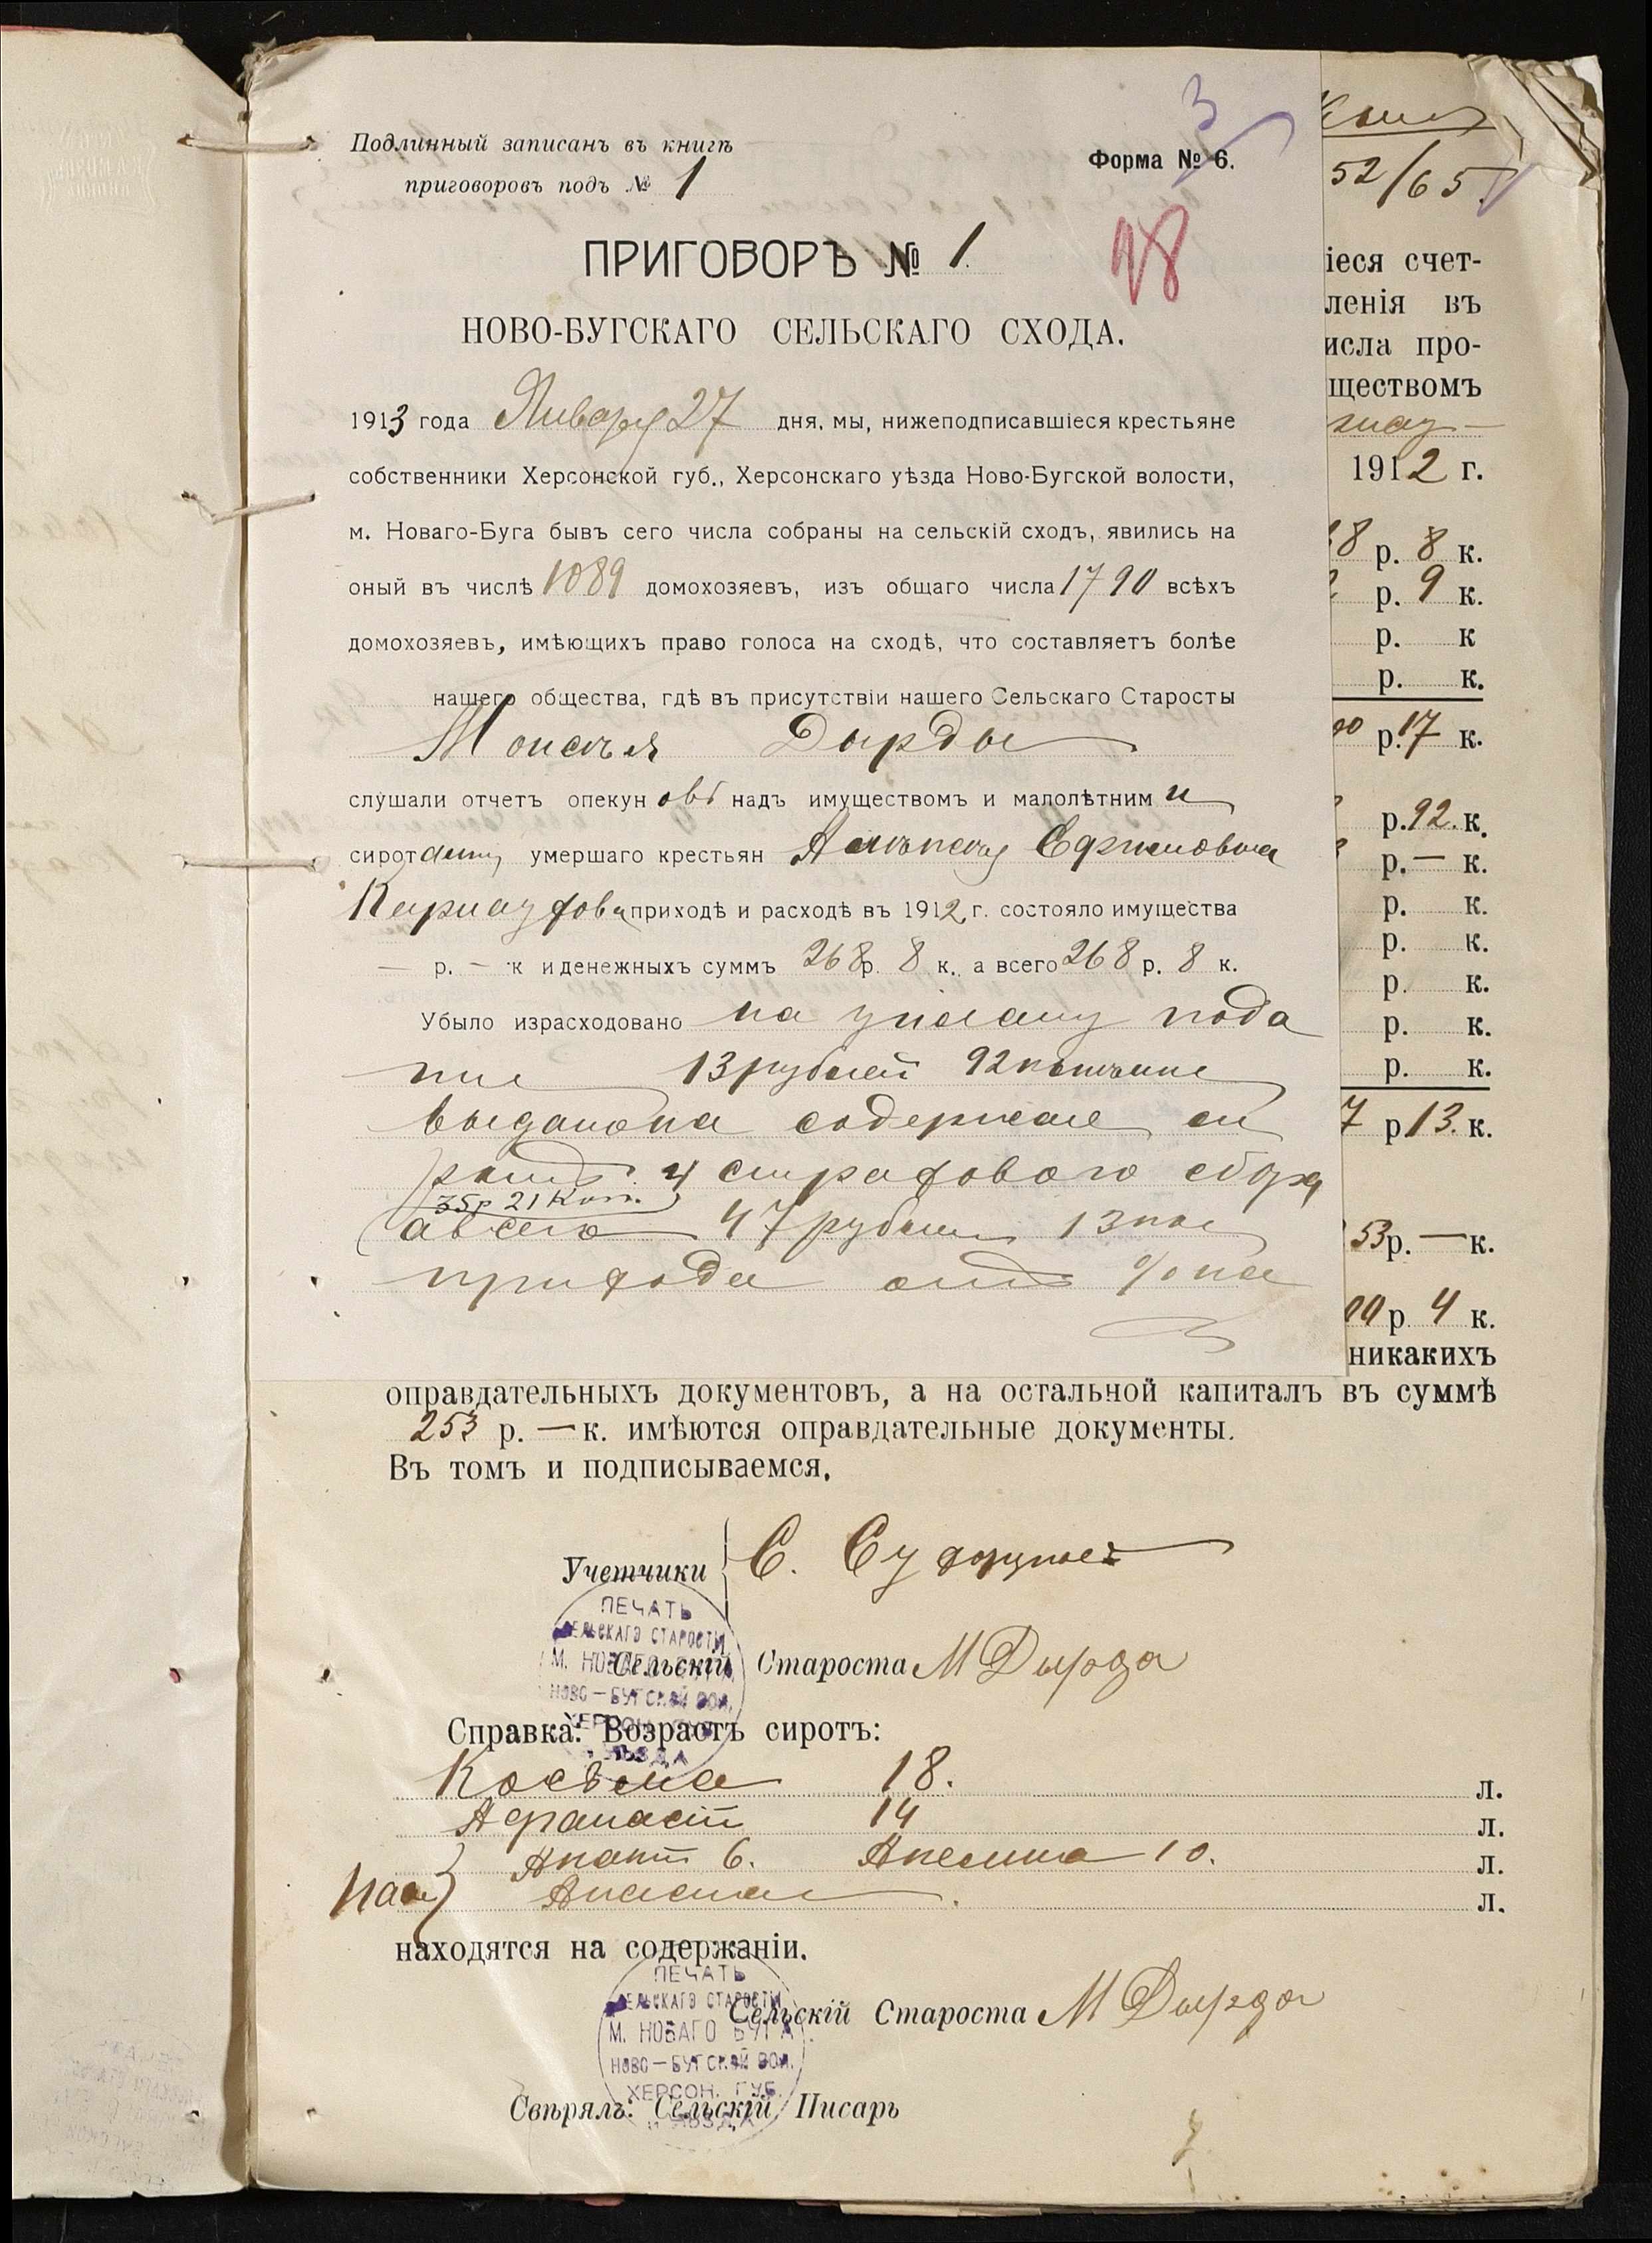 Подлинный записанъ въ книгѣ
приговоровъ подъ № 1
3
Форма № 6.
52/65.
ПРИГОВОРЪ № 1.
НОВО-БУГСКАГО СЕЛЬСКАГО СХОДА.
1913 года Января 27 дня, мы, нижеподписавшіеся крестьяне
собственники Херсонской губ., Херсонскаго уѣзда Ново-Бугской волости,
м. Новаго-Буга бывъ сего числа собраны на сельскій сходъ, явились на
оный въ числѣ 1089 домохозяевъ, изъ общаго числа 1790 всѣхъ
домохозяевъ, имѣющихъ право голоса на сходѣ, что составляетъ болѣе
нашего общества, гдѣ въ присутствіи нашего Сельскаго Старосты
Моисѣя Дырды
слушали отчетъ опекуновъ надъ имуществомъ и малолѣтними
сиротами умершаго крестьян
приходѣ и расходѣ въ 1912 г. состояло имущества
— р. — к и денежныхъ суммъ 268 р. 8 к., а всего 268 р. 8 к.
Убыло израсходовано на уплату пода
13 рублей 92
выдано на содержаніе си
ротъ и страфового сбора
35р 21 коп.
а всего 47 рублей 13 коп
прихода отъ % на
іеся счет-
ленія въ
исла про-
ществомъ
1912 г.
8 р. 8 к.
р. 9 к.
р. к
р. к.
р. 17 к.
р. 92. к.
р. — к.
р. к.
р. к.
р. к.
р. к.
р. к.
7 р 13. к.
53р. — к.
р. 4 к.
никакихъ
оправдательныхъ документовъ, а на остальной капиталъ въ суммѣ
253 р. — к. имѣются оправдательные документы.
Въ томъ и подписываемся.
Учетчики С.
Сельскій Староста М Дырда
ПЕЧАТЬ
СЕЛЬСКАГО СТАРОСТЫ
М. НОВАГО БУГА
НОВО-БУГСКОЙ ВОЛ.
ХЕРСОН. ГУБ.
И УѢЗДА
Справка: Возрастъ сиротъ:
Косьма 18. л.
Афанасій 14 л.
6. 10. л.
л.
находятся на содержаніи.
Сельскій Староста М Дырда
ПЕЧАТЬ
СЕЛЬСКАГО СТАРОСТЫ
М. НОВАГО БУГА
НОВО-БУГСКОЙ ВОЛ.
ХЕРСОН. ГУБ.
И УѢЗДА
Свѣрялъ: Сельскій Писарь